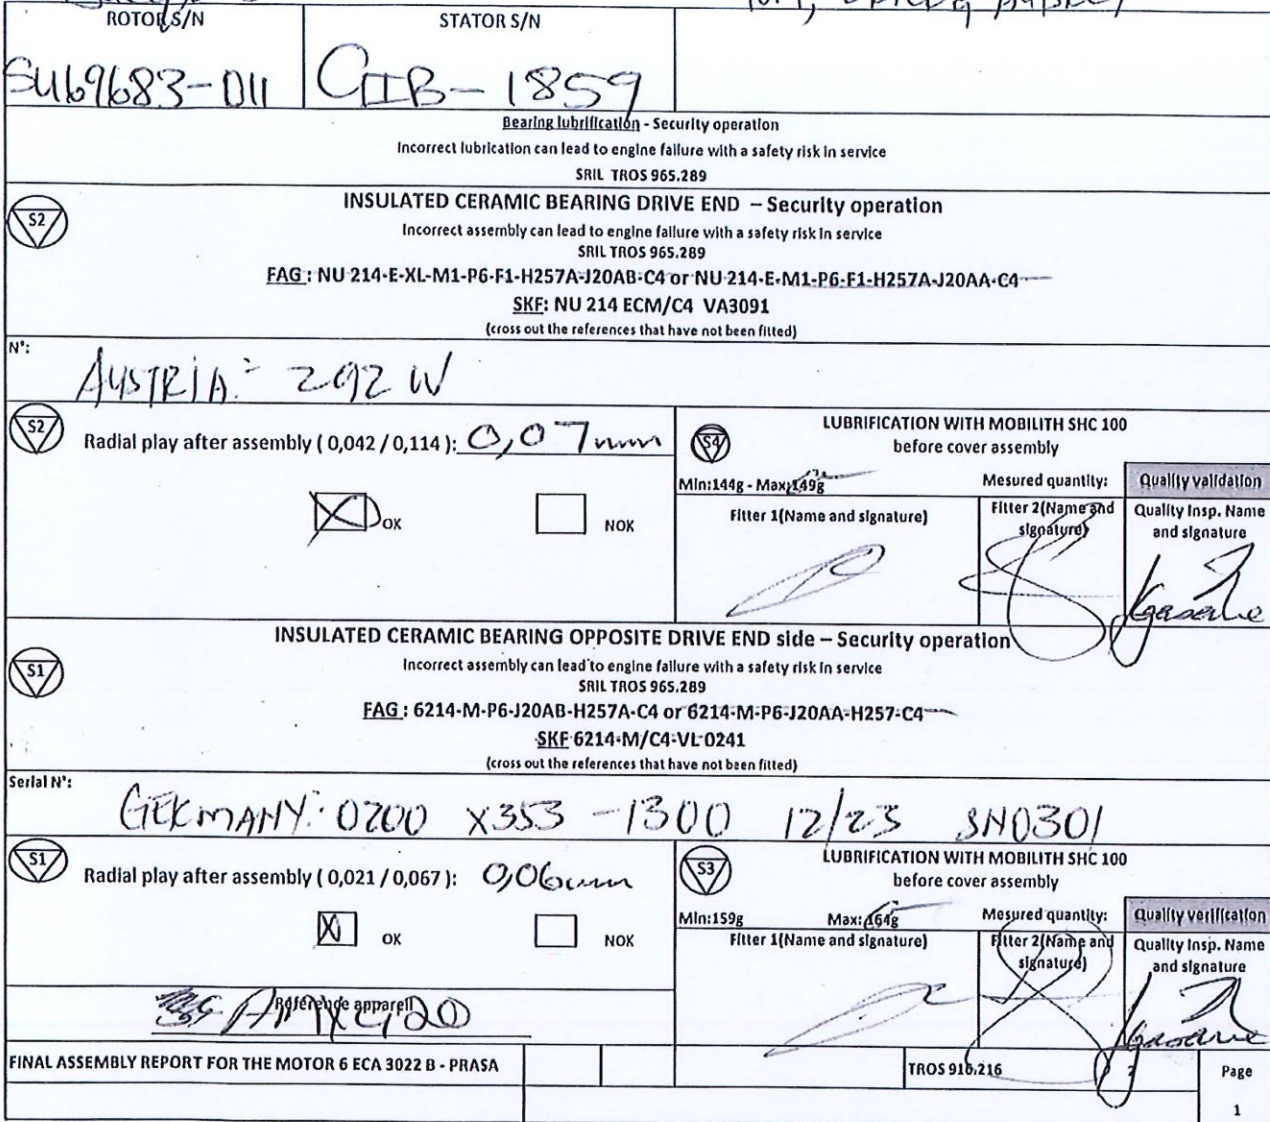 ROTOR S/N
STATOR S/N
SU69683-D11
CIIB-1859
Bearing lubrification - Security operation
Incorrect lubrication can lead to engine failure with a safety risk in service
SRIL TROS 965.289
S2
INSULATED CERAMIC BEARING DRIVE END – Security operation
Incorrect assembly can lead to engine failure with a safety risk in service
SRIL TROS 965.289
FAG : NU 214-E-XL-M1-P6-F1-H257A-J20AB-C4 or NU 214-E-M1-P6-F1-H257A-J20AA-C4
SKF: NU 214 ECM/C4 VA3091
(cross out the references that have not been fitted)
N°:
AUSTRIA: 292 W
S2
Radial play after assembly ( 0,042 / 0,114 ): 0,07mm
OK
NOK
S4
LUBRIFICATION WITH MOBILITH SHC 100
before cover assembly
Min:144g - Max:149g
Mesured quantity:
Quality validation
Fitter 1(Name and signature)
Fitter 2(Name and signature)
Quality Insp. Name and signature
INSULATED CERAMIC BEARING OPPOSITE DRIVE END side – Security operation
S1
Incorrect assembly can lead to engine failure with a safety risk in service
SRIL TROS 965.289
FAG : 6214-M-P6-J20AB-H257A-C4 or 6214-M-P6-J20AA-H257-C4
SKF 6214-M/C4-VL 0241
(cross out the references that have not been fitted)
Serial N°:
GERMANY: 0200 X353 -1300 12/23 SN0301
S1
Radial play after assembly ( 0,021 / 0,067 ): 0,06mm
OK
NOK
S3
LUBRIFICATION WITH MOBILITH SHC 100
before cover assembly
Min:159g Max:164g
Mesured quantity:
Quality verification
Fitter 1(Name and signature)
Fitter 2(Name and signature)
Quality Insp. Name and signature
Référence appareil
FINAL ASSEMBLY REPORT FOR THE MOTOR 6 ECA 3022 B - PRASA
TROS 916.216
Page
1